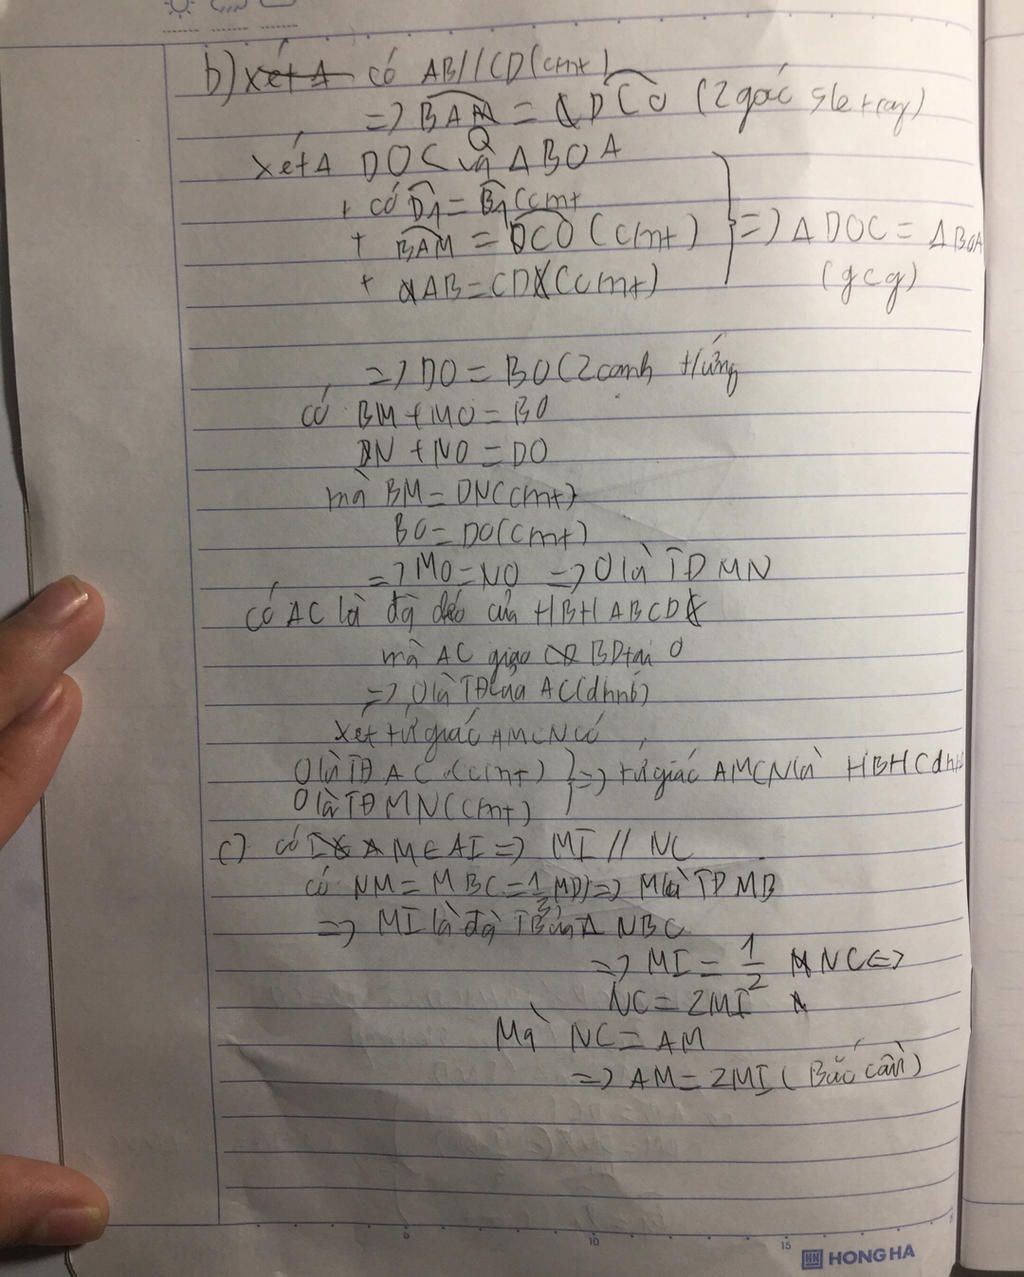 b) có AB//CD(cmt)
=> BAM = DCO (2 góc sle trong)
Xét Δ DOC và Δ BOA
+ có D1 = B1 (cmt
+ BAM = DCO (cmt)
+ AB=CD (cmt)
=> Δ DOC = Δ BOA
(gcg)
=> DO = BO (2 cạnh t/ứng
có BM + MO = BO
DN + NO = DO
mà BM = DN (cmt)
BO = DO (cmt)
=> MO = NO => O là TĐ MN
có AC là đg chéo của HBH ABCD
mà AC giao BD tại O
=> O là TĐ của AC (dhnb)
Xét tứ giác AMCN có
O là TĐ AC (cmt)
O là TĐ MN (cmt)
=> tứ giác AMCN là HBH (dhnb
c) có M ∈ AI => MI // NC
có NM = MB (= 1/3 BD) => M là TĐ MB
=> MI là đg TB của Δ NBC
=> MI = 1/2 NC <=>
NC = 2MI
Mà NC = AM
=> AM = 2MI ( Bắc cầu )
5 10 15
HH HONG HA